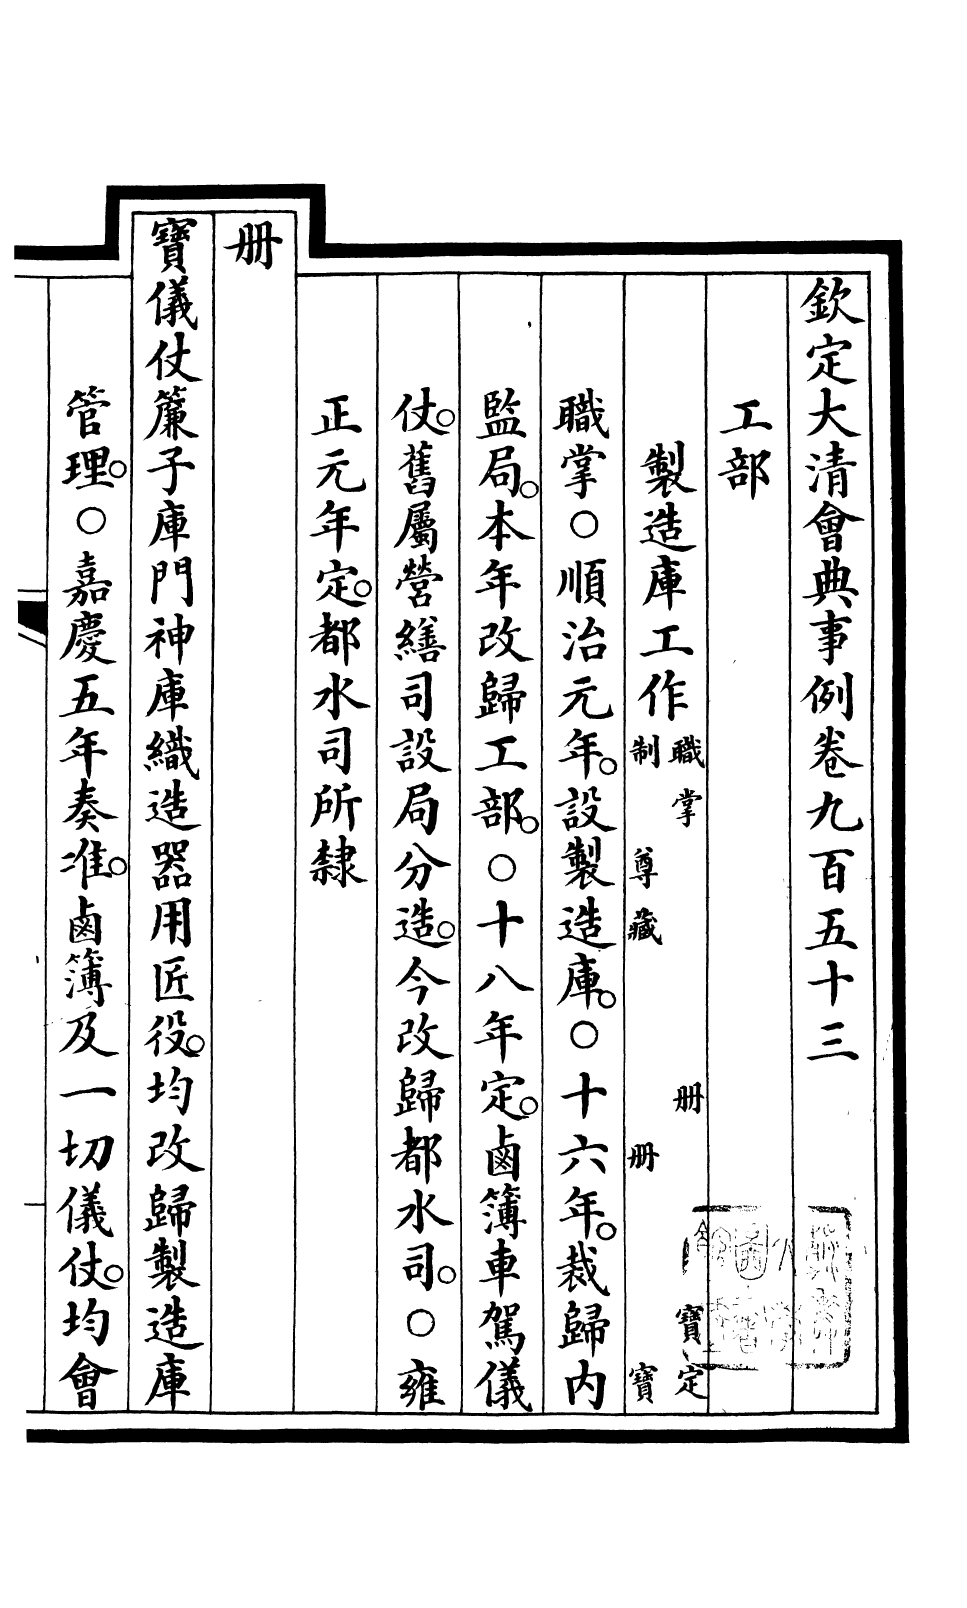 欽定大清會典事例卷九百五十三
工部
製造庫工作 職掌 册寶定制 尊藏册寶
職掌○順治元年。設製造庫。○十六年。裁歸内
監局。本年改歸工部。○十八年定。鹵簿車駕儀
仗。舊屬營繕司設局分造。今改歸都水司。○雍
正元年定。都水司所隸
册
寶儀仗簾子庫門神庫織造器用匠役。均改歸製造庫
管理。○嘉慶五年奏准。鹵簿及一切儀仗。均會